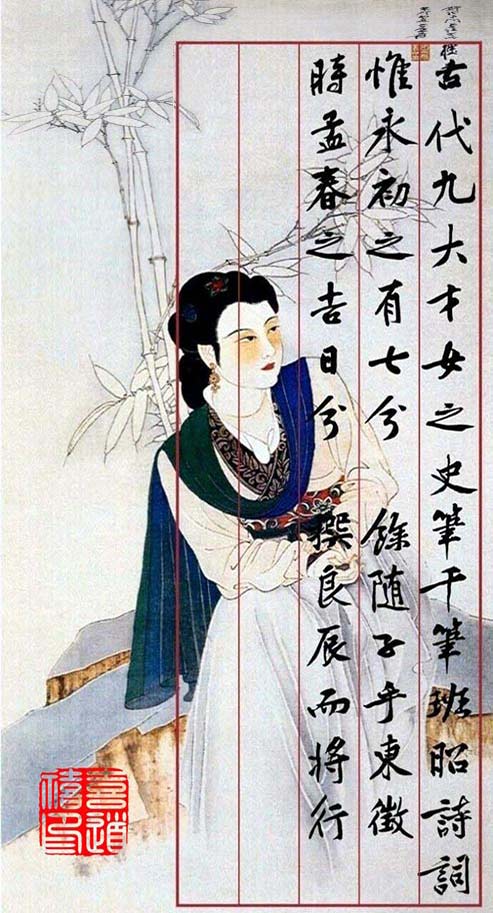 古代九大才女之史筆干筆班昭詩詞
惟永初之有七兮 餘随子乎東徵
時孟春之吉日兮 撰良辰而將行